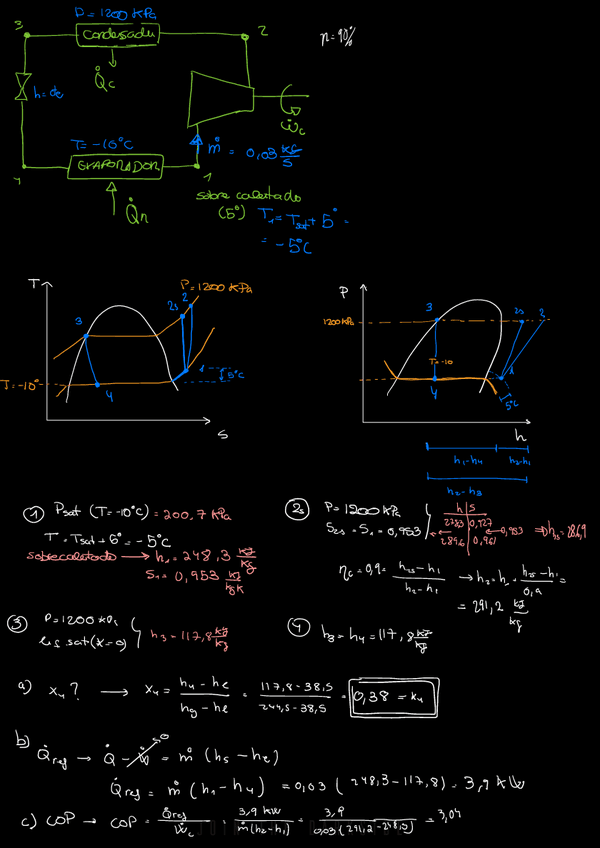 P = 1200 KPa
3
Condesador
2
η = 90%
Q̇c
h = cte
Ẇc
T = -10°C
ṁ = 0,03 kg/s
EVAPORADOR
4
1
sobrecalentado
(5°)
T1 = Tsat + 5° =
= -5°C
Q̇n
T
P = 1200 KPa
2s 2
3
1
5°C
T = -10°
4
s
P
1200 KPa
3
2s
2
T = -10
4
1
5°C
h
h1-h4
h2-h1
h2-h3
1 Psat (T = -10°C) = 200,7 KPa
T = Tsat + 5° = -5°C
sobrecalentado → h1 = 248,3 kJ/kg
s1 = 0,953 kJ/kgK
2s P = 1200 KPa
s2s = s1 = 0,953
h | s
278,3 | 0,927
← 0,953 → h2s = 286,9
289,6 | 0,961
ηc = 0,9 = (h2s - h1)/(h2 - h1) → h2 = h1 + (h2s - h1)/0,9 =
= 291,2 kJ/kg
3 P = 1200 KPa
liq sat (x = 0)
h3 = 117,8 kJ/kg
4 h3 = h4 = 117,8 kJ/kg
a) x4? → x4 = (h4 - hl)/(hg - hl) = (117,8 - 38,5)/(244,5 - 38,5) = 0,38 = x4
b)
Q̇ref → Q̇ - Ẇ = ṁ (hs - he)
Q̇ref = ṁ (h1 - h4) = 0,03 (248,3 - 117,8) = 3,9 kW
c) COP → COP = Q̇ref/Ẇc = 3,9 kW/ṁ(h2-h1) = 3,9/0,03(291,2-248,3) = 3,04